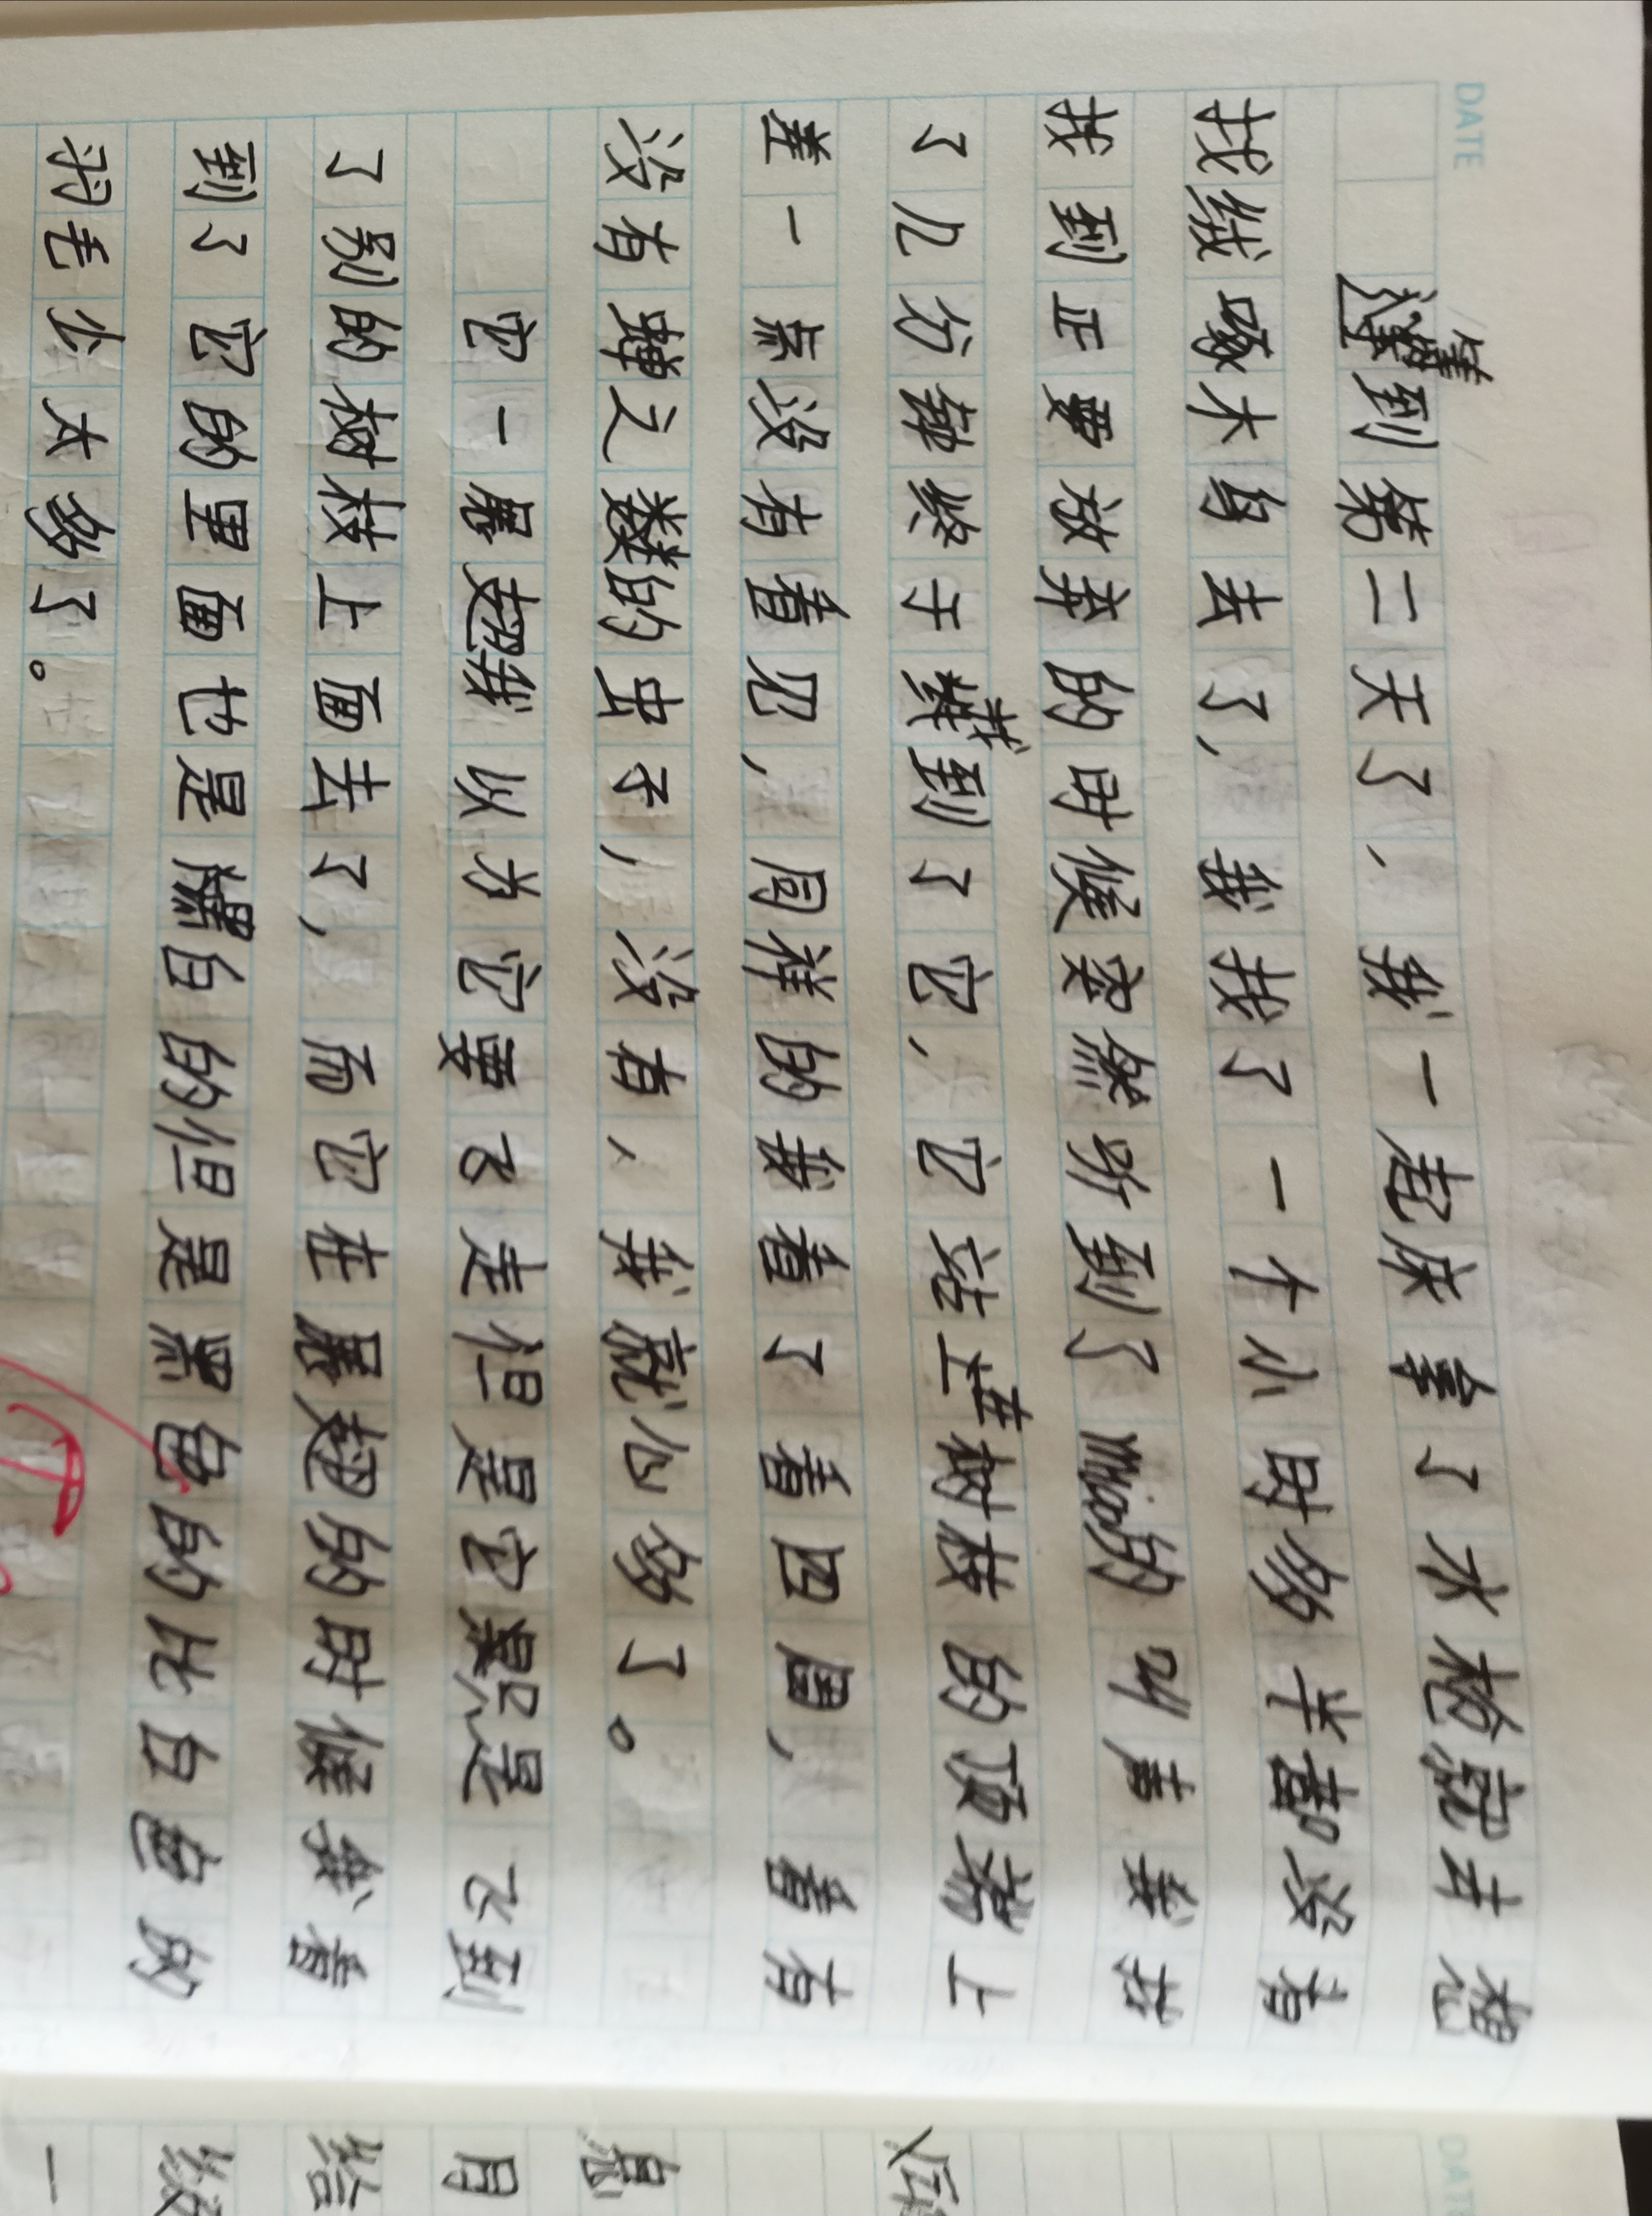 DATE
等到第二天了，我一起床拿了水枪就去想
找绒啄木鸟去了，我找了一个小时多半都没有
找到正要放弃的时候突然听到了miao的叫声我找
了几分钟终于找到了它，它站在树枝的顶端上
差一点没有看见，同样的我看了看四周，看有
没有蝉之类的虫子，没有，我就心多了。
它一展翅我以为它要飞走但是它只是飞到
了别的树枝上面去了，而它在展翅的时候我看
到了它的里面也是黑白的但是黑色的比白色的
羽毛少太多了。